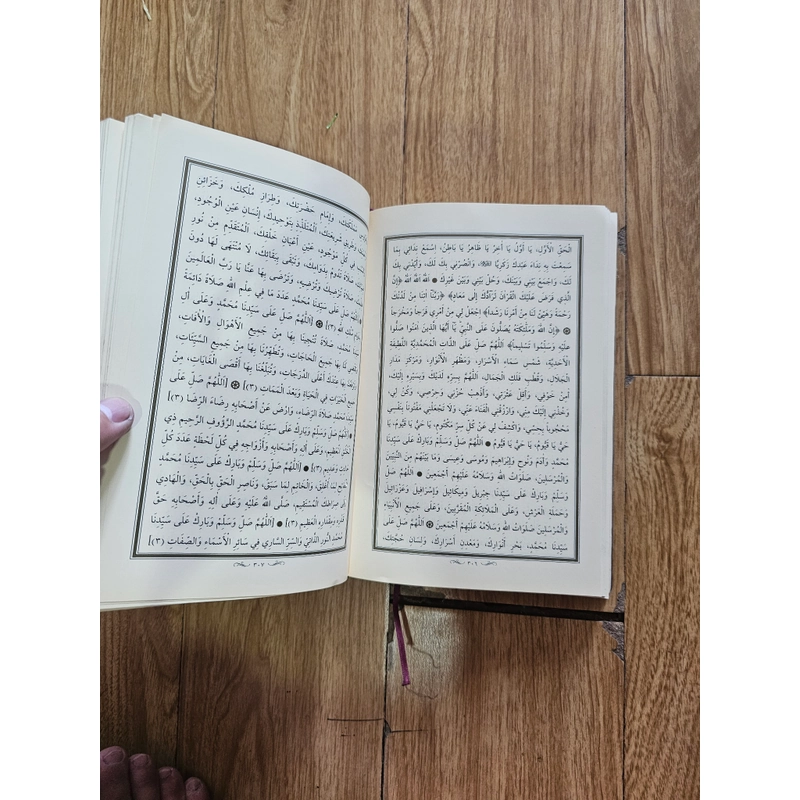 الْحَقِّ الْأَوَّلِ، يَا أَوَّلُ يَا آخِرُ يَا ظَاهِرُ يَا بَاطِنُ، اسْمَعْ نِدَائِي بِمَا
سَمِعْتَ بِهِ نِدَاءَ عَبْدِكَ زَكَرِيَّا، وَانْصُرْنِي بِكَ لَكَ، وَأَيِّدْنِي بِكَ
لَكَ، وَاجْمَعْ بَيْنِي وَبَيْنَكَ، وَحُلْ بَيْنِي وَبَيْنَ غَيْرِكَ ۞ اللهُ اللهُ اللهُ ﴿إِنَّ
الَّذِي فَرَضَ عَلَيْكَ الْقُرْآنَ لَرَادُّكَ إِلَى مَعَادٍ﴾ ﴿رَبَّنَا آتِنَا مِنْ لَدُنْكَ
رَحْمَةً وَهَيِّئْ لَنَا مِنْ أَمْرِنَا رَشَداً﴾ اجْعَلْ لِي مِنْ أَمْرِي فَرَجاً وَمَخْرَجاً
۞ ﴿إِنَّ اللهَ وَمَلَائِكَتَهُ يُصَلُّونَ عَلَى النَّبِيِّ يَا أَيُّهَا الَّذِينَ آمَنُوا صَلُّوا
عَلَيْهِ وَسَلِّمُوا تَسْلِيماً﴾ اللَّهُمَّ صَلِّ عَلَى الذَّاتِ الْمُحَمَّدِيَّةِ اللَّطِيفَةِ
الْأَحَدِيَّةِ، شَمْسِ سَمَاءِ الْأَسْرَارِ، وَمَظْهَرِ الْأَنْوَارِ، وَمَرْكَزِ مَدَارِ
الْجَلَالِ، وَقُطْبِ فَلَكِ الْجَمَالِ، اللَّهُمَّ بِسِرِّهِ لَدَيْكَ وَبِسَيْرِهِ إِلَيْكَ،
آمِنْ خَوْفِي، وَأَقِلْ عَثْرَتِي، وَأَذْهِبْ حُزْنِي، وَحِرْصِي، وَكُنْ لِي
وَخُذْنِي إِلَيْكَ مِنِّي، وَارْزُقْنِي الْفَنَاءَ عَنِّي، وَلَا تَجْعَلْنِي مَفْتُوناً بِنَفْسِي
مَحْجُوباً بِحِسِّي، وَاكْشِفْ لِي عَنْ كُلِّ سِرٍّ مَكْتُومٍ، يَا حَيُّ يَا قَيُّومُ، يَا
حَيُّ يَا قَيُّومُ، يَا حَيُّ يَا قَيُّومُ ۞ اللَّهُمَّ صَلِّ وَسَلِّمْ وَبَارِكْ عَلَى سَيِّدِنَا
مُحَمَّدٍ وَآدَمَ وَنُوحٍ وَإِبْرَاهِيمَ وَمُوسَى وَعِيسَى وَمَا بَيْنَهُمْ مِنَ النَّبِيِّينَ
وَالْمُرْسَلِينَ صَلَوَاتُ اللهِ وَسَلَامُهُ عَلَيْهِمْ أَجْمَعِينَ ۞ اللَّهُمَّ صَلِّ
وَسَلِّمْ وَبَارِكْ عَلَى سَيِّدِنَا جِبْرِيلَ وَمِيكَائِيلَ وَإِسْرَافِيلَ وَعَزْرَائِيلَ
وَحَمَلَةِ الْعَرْشِ، وَعَلَى الْمَلَائِكَةِ الْمُقَرَّبِينَ، وَعَلَى جَمِيعِ الْأَنْبِيَاءِ
وَالْمُرْسَلِينَ صَلَوَاتُ اللهِ وَسَلَامُهُ عَلَيْهِمْ أَجْمَعِينَ ۞ اللَّهُمَّ صَلِّ عَلَى
سَيِّدِنَا مُحَمَّدٍ، بَحْرِ أَنْوَارِكَ، وَمَعْدِنِ أَسْرَارِكَ، وَلِسَانِ حُجَّتِكَ،
٣٠٦
مَمْلَكَتِكَ، وَإِمَامِ حَضْرَتِكَ، وَطِرَازِ مُلْكِكَ، وَخَزَائِنِ
وَطَرِيقِ شَرِيعَتِكَ، الْمُتَلَذِّذِ بِتَوْحِيدِكَ، إِنْسَانِ عَيْنِ الْوُجُودِ،
فِي كُلِّ مَوْجُودٍ، عَيْنِ أَعْيَانِ خَلْقِكَ، الْمُتَقَدِّمِ مِنْ نُورِ
صَلَاةً تَدُومُ بِدَوَامِكَ، وَتَبْقَى بِبَقَائِكَ، لَا مُنْتَهَى لَهَا دُونَ
صَلَاةً تُرْضِيكَ وَتُرْضِيهِ، وَتَرْضَى بِهَا عَنَّا يَا رَبَّ الْعَالَمِينَ
صَلِّ عَلَى سَيِّدِنَا مُحَمَّدٍ عَدَدَ مَا فِي عِلْمِ اللهِ صَلَاةً دَائِمَةً
مُلْكِ اللهِ (٣)] ۞ [اللَّهُمَّ صَلِّ عَلَى سَيِّدِنَا مُحَمَّدٍ وَعَلَى آلِ
صَلَاةً تُنْجِينَا بِهَا مِنْ جَمِيعِ الْأَهْوَالِ وَالْآفَاتِ،
لَنَا بِهَا جَمِيعَ الْحَاجَاتِ، وَتُطَهِّرُنَا بِهَا مِنْ جَمِيعِ السَّيِّئَاتِ،
بِهَا عِنْدَكَ أَعْلَى الدَّرَجَاتِ، وَتُبَلِّغُنَا بِهَا أَقْصَى الْغَايَاتِ، مِنْ
الْخَيْرَاتِ فِي الْحَيَاةِ وَبَعْدَ الْمَمَاتِ (٣)] ۞ [اللَّهُمَّ صَلِّ عَلَى
مُحَمَّدٍ صَلَاةَ الرِّضَا، وَارْضَ عَنْ أَصْحَابِهِ رِضَاءَ الرِّضَا (٣)]
[اللَّهُمَّ صَلِّ وَسَلِّمْ وَبَارِكْ عَلَى سَيِّدِنَا مُحَمَّدٍ الرَّؤُوفِ الرَّحِيمِ ذِي
الْعَظِيمِ، وَعَلَى آلِهِ وَأَصْحَابِهِ وَأَزْوَاجِهِ فِي كُلِّ لَحْظَةٍ عَدَدَ كُلِّ
وَقَدِيمٍ (٣)] ۞ [اللَّهُمَّ صَلِّ وَسَلِّمْ وَبَارِكْ عَلَى سَيِّدِنَا مُحَمَّدٍ
لِمَا أُغْلِقَ، وَالْخَاتِمِ لِمَا سَبَقَ، وَنَاصِرِ الْحَقِّ بِالْحَقِّ، وَالْهَادِي
صِرَاطِكَ الْمُسْتَقِيمِ، صَلَّى اللهُ عَلَيْهِ وَعَلَى آلِهِ وَأَصْحَابِهِ حَقَّ
قَدْرِهِ وَمِقْدَارِهِ الْعَظِيمِ (٣)] ۞ [اللَّهُمَّ صَلِّ وَسَلِّمْ وَبَارِكْ عَلَى سَيِّدِنَا
مُحَمَّدٍ النُّورِ الذَّاتِيِّ وَالسِّرِّ السَّارِي فِي سَائِرِ الْأَسْمَاءِ وَالصِّفَاتِ (٣)]
٣٠٧